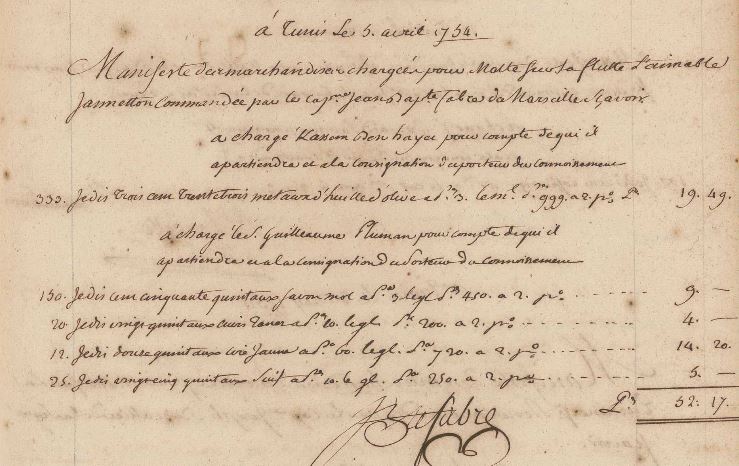 à Tunis Le 5. avril 1754.
Manifeste des marchandises chargées pour Malte sur La flutte L'aimable
Jannetton Commandée par le capne Jean Bapte fabre de Marseille Savoir
a chargé Kassem Ben hayet pour compte de qui il
apartiendra et a la Consignation du porteur du Connoissement
333. Je dis trois cent trente trois metaux d'huille d'olive a Prs 3. le ml. Prs 999. a 2. p% Prs 19. 49.
a chargé le S. Guilleaume Pluman pour compte de qui il
apartiendra et a la Consignation du Porteur du Connoissement
150. Je dis cent cinquante quintaux savon mol a Prs 3. le ql Prs 450. a 2. p% 9. —
20. Je dis vingt quintaux cuirs Tanés a Prs 10. le ql. Prs 200. a 2. p% 4. —
12. Je dis douze quintaux cire Jaune a Prs 60. le ql. Prs 720. a 2. p% 14. 20.
25. Je dis vingt cinq quintaux suif a Prs 10. le ql. Prs 250. a 2. p% 5. —
Prs 52. 17.
fabre